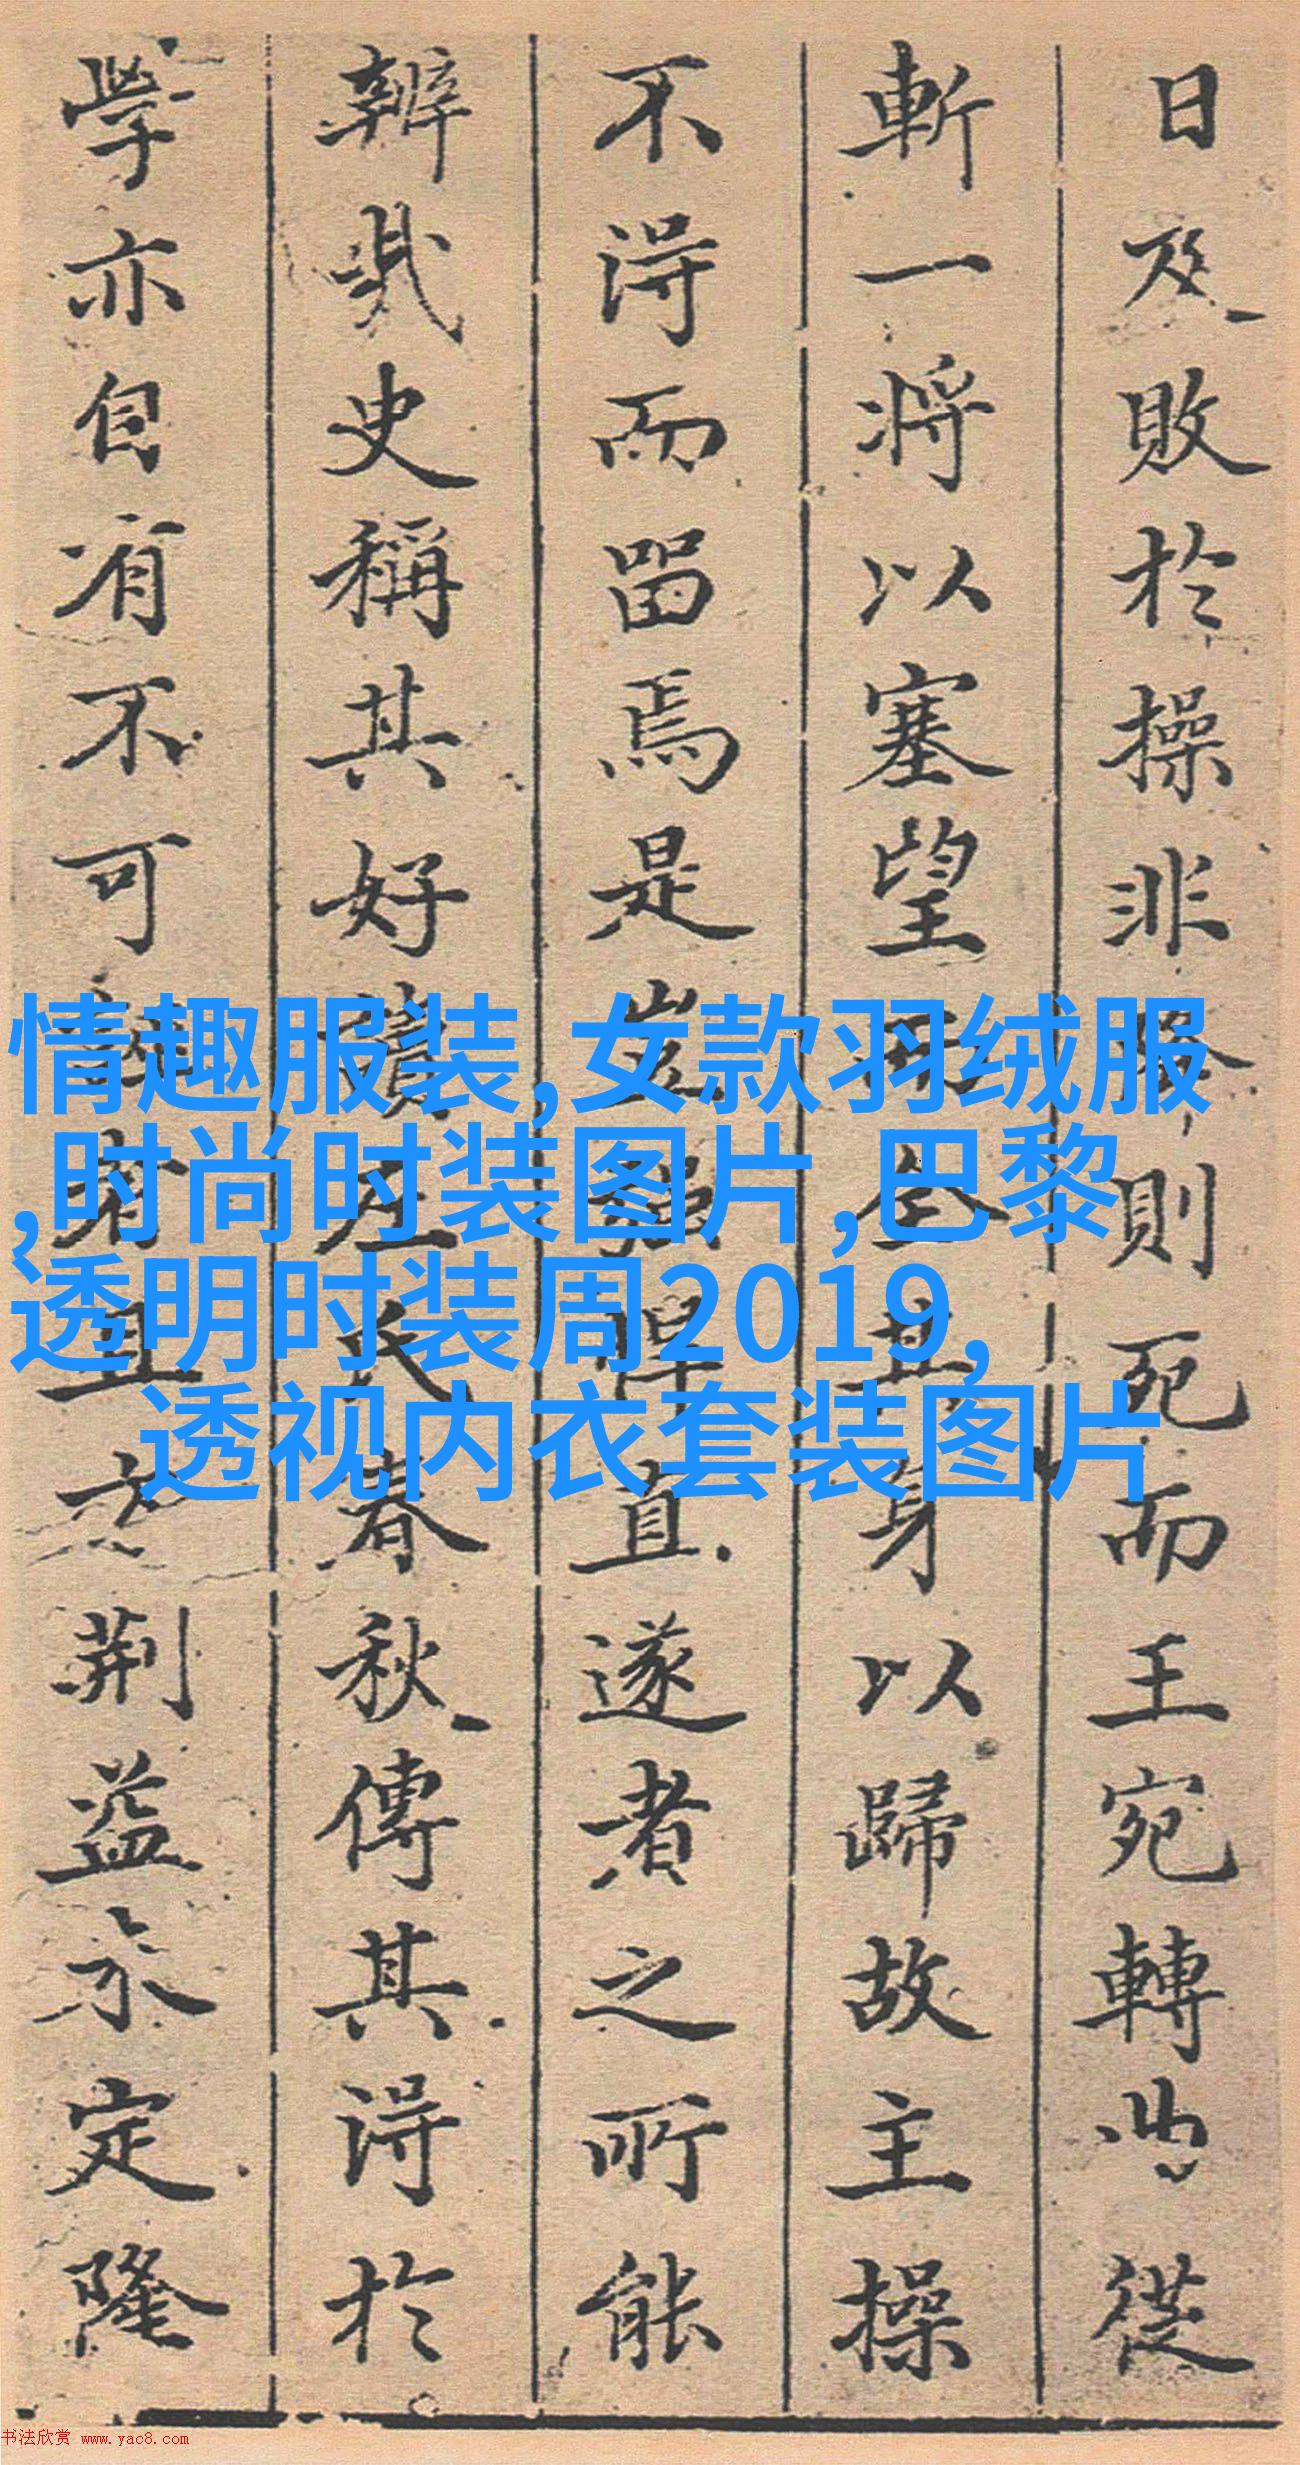 日及敗於操非則死而王宛轉曲從
斬一將以塞望全其身以歸故主操
不得而留焉是豈強悍直遂者之所能
辨哉史稱其好讀左氏春秋傳其得於
學亦自有不可者且夫荊益未定隆
情趣服装,女款羽绒服
,时尚时装图片,巴黎
透明时装周2019,
透视内衣套装图片
书法欣赏 www.yac8.com